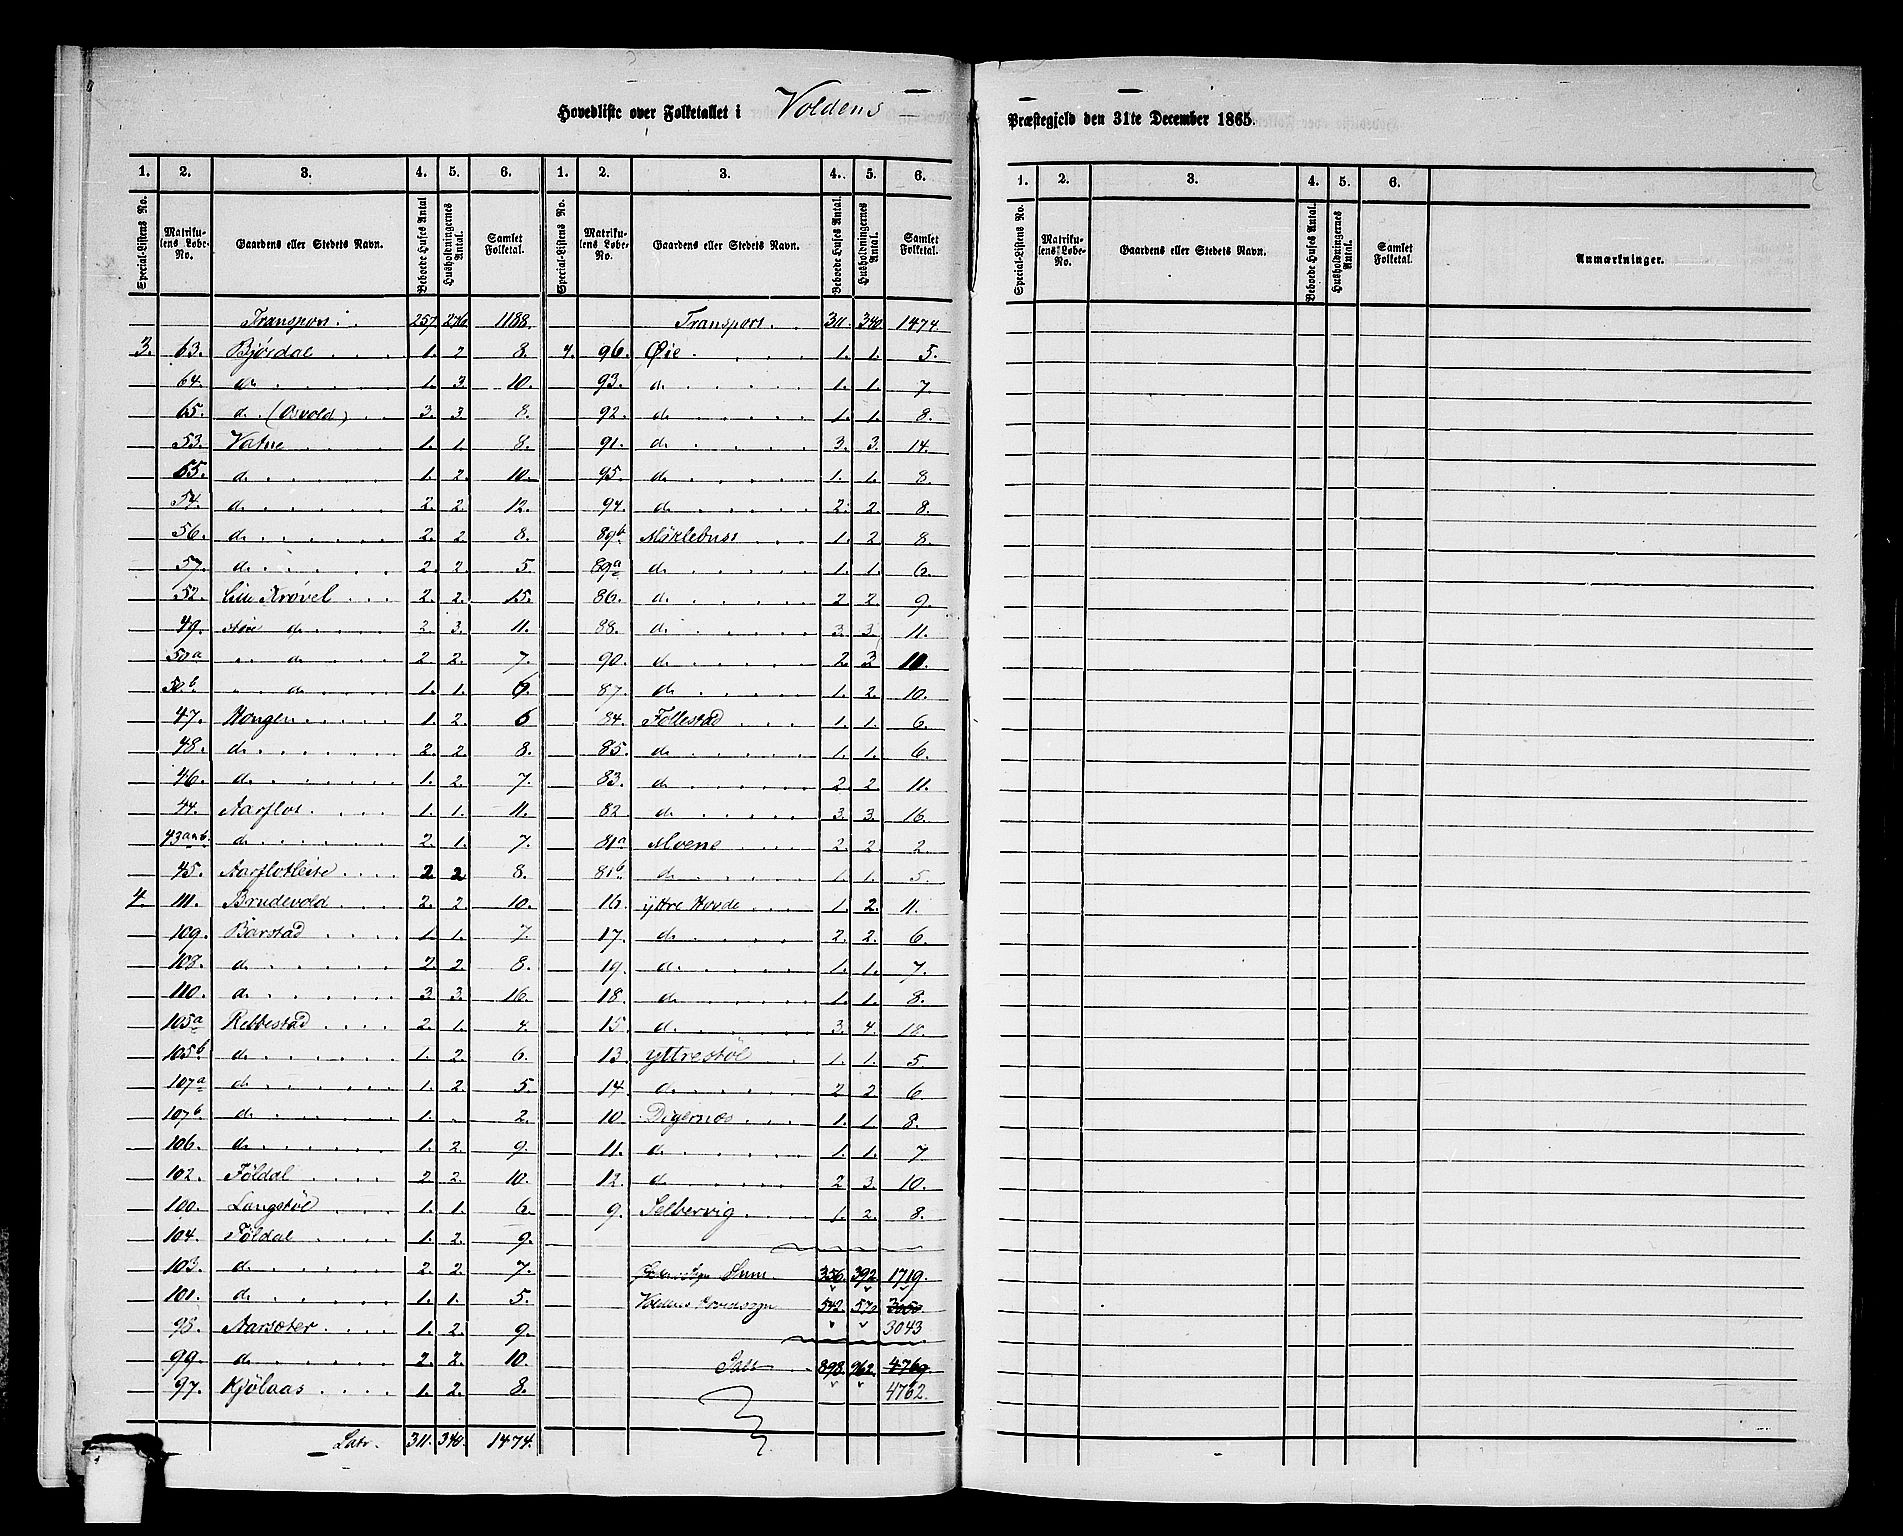 Hovedliste over Folketallet i Voldens
Præstegjeld den 31te December 1865.
1. 2. 3. 4. 5. 6. 1. 2. 3. 4. 5. 6.
Special-Listens No. Matrikulens Løbe-No. Gaardens eller Stedets Navn. Beboede Huses Antal Husholdningernes Antal. Samlet Folketal. Special-Listens No. Matrikulens Løbe-No. Gaardens eller Stedets Navn. Beboede Huses Antal. Husholdningernes Antal. Samlet Folketal.
Transport: 257 276 1188.
3. 63. Bjørdal 1. 2 8.
64. do 1. 3. 10.
65. do (Osvold) 3. 3. 8.
53. Vatne 1. 1. 8.
55. do 1. 2. 10.
54. do 2. 2. 12.
56. do 2. 2 8.
57. do 2. 2 5.
52. Lille Krøvel 2. 2. 15.
49. store do 2. 3. 11.
50a " do 2 2. 7.
50b " do 1. 1. 6.
47. Hougen 1. 2. 6
48. do 2. 2 8.
46. do 1. 2. 7.
44. Aarflot 1. 1. 11.
43a&b. do 2. 1. 7.
45. Aarflotleite 2 2 8.
4. 111. Brudevold 2. 2 10.
109. Barstad 1. 1. 7.
108. do 2. 2 8.
110. do 3. 3. 16.
105a Rebbestad 2. 1. 4.
105b do 1. 2 6.
107a do 1. 2. 5.
107b do 1. . 2.
106. do 1. 2 9.
102. Føldal 2 2. 10.
100. Langstøl 1. 1. 6.
104. Føldal 1. 2. 9.
103. do 2. 2. 7.
101. do 1. 1. 5.
98. Aarsæter 1. 2. 9.
99. do 2. 2. 10.
97. Kjølaas 1. 2. 8.
Latr. 311. 340. 1474.
Transport. 311. 340. 1474.
4. 96. Øie 1. 1. 5.
93. do 1. 1. 7
92. do 1. 1. 8
91. do 3. 3. 14.
95. do 1. 1. 8
94. do 2. 2. 8.
89b Møklebust 1. 2 8.
89a do 1. 1. 6.
86. do 2 2. 9.
88. do 3. 3. 11.
90. do 2. 3 10.
87. do 1. 2. 10.
84. Follestad 1. 1. 6.
85. do 1. 1. 6.
83. do 2. 2 11.
82 do 3. 3. 16
81a Moene 2. 2 2.
81b do 1. 1. 5.
16. yttre Hovde 1. 2. 11.
17. do 2. 2. 6.
19. do 1. 1. 7.
18. do 1. 1. 8.
15. do 3. 4. 18.
13. yttrestøl 1. 1. 5
14. do 2 2. 6.
10. Digernæs 1. 1. 8.
11. do 1. 1. 7
12. do 2 3. 10.
9. Selbervig 1. 2. 8.
Sum 356. 392. 1719.
Voldens Hovedsogn 542. 570 3050
3043
Tals 898. 962. 4769
4762.
1. 2. 3. 4. 5. 6.
Special-Listens No. Matrikulens Løbe-No. Gaardens eller Stedets Navn. Beboede Huses Antal. Husholdningernes Antal. Samlet Folketal. Anmærkninger.